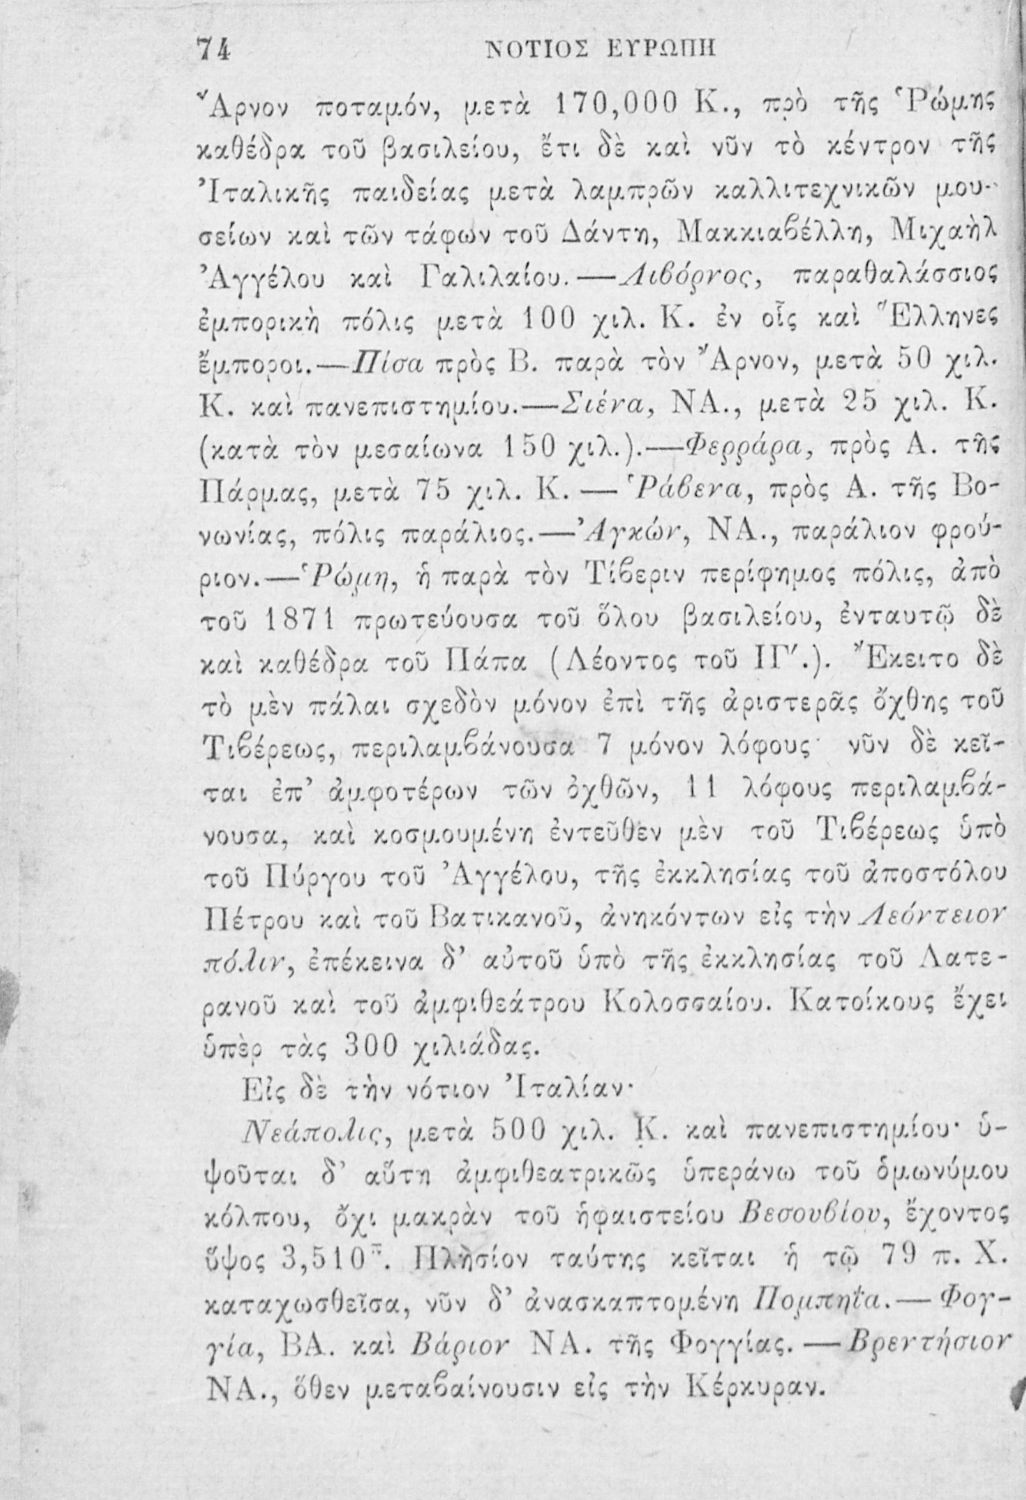 74 ΝΟΤΙΟΣ ΕΥΡΩΠΗ
Ἄρνον ποταμόν, μετὰ 170,000 Κ., πρὸ τῆς Ῥώμης
καθέδρα τοῦ βασιλείου, ἔτι δὲ καὶ νῦν τὸ κέντρον τῆς
Ἰταλικῆς παιδείας μετὰ λαμπρῶν καλλιτεχνικῶν μου-
σείων καὶ τῶν τάφων τοῦ Δάντη, Μακκιαβέλλη, Μιχαὴλ
Ἀγγέλου καὶ Γαλιλαίου.—Λιβόρνος, παραθαλάσσιος
ἐμπορικὴ πόλις μετὰ 100 χιλ. Κ. ἐν οἷς καὶ Ἕλληνες
ἔμποροι.—Πίσα πρὸς Β. παρὰ τὸν Ἄρνον, μετὰ 50 χιλ.
Κ. καὶ πανεπιστημίου.—Σιένα, ΝΑ., μετὰ 25 χιλ. Κ.
(κατὰ τὸν μεσαίωνα 150 χιλ.).—Φερράρα, πρὸς Α. τῆς
Πάρμας, μετὰ 75 χιλ. Κ.—Ῥάβενα, πρὸς Α. τῆς Βο-
νωνίας, πόλις παράλιος.—Ἀγκών, ΝΑ., παράλιον φρού-
ριον.—Ῥώμη, ἡ παρὰ τὸν Τίβεριν περίφημος πόλις, ἀπὸ
τοῦ 1871 πρωτεύουσα τοῦ ὅλου βασιλείου, ἐνταυτῷ δὲ
καὶ καθέδρα τοῦ Πάπα (Λέοντος τοῦ ΙΓ′.). Ἔκειτο δὲ
τὸ μὲν πάλαι σχεδὸν μόνον ἐπὶ τῆς ἀριστερᾶς ὄχθης τοῦ
Τιβέρεως, περιλαμβάνουσα 7 μόνον λόφους· νῦν δὲ κεῖ-
ται ἐπ’ ἀμφοτέρων τῶν ὀχθῶν, 11 λόφους περιλαμβά-
νουσα, καὶ κοσμουμένη ἐντεῦθεν μὲν τοῦ Τιβέρεως ὑπὸ
τοῦ Πύργου τοῦ Ἀγγέλου, τῆς ἐκκλησίας τοῦ ἀποστόλου
Πέτρου καὶ τοῦ Βατικανοῦ, ἀνηκόντων εἰς τὴν Λεόντειον
πόλιν, ἐπέκεινα δ’ αὐτοῦ ὑπὸ τῆς ἐκκλησίας τοῦ Λατε-
ρανοῦ καὶ τοῦ ἀμφιθεάτρου Κολοσσαίου. Κατοίκους ἔχει
ὑπὲρ τὰς 300 χιλιάδας.
Εἰς δὲ τὴν νότιον Ἰταλίαν·
Νεάπολις, μετὰ 500 χιλ. Κ. καὶ πανεπιστημίου· ὑ-
ψοῦται δ’ αὕτη ἀμφιθεατρικῶς ὑπεράνω τοῦ ὁμωνύμου
κόλπου, ὄχι μακρὰν τοῦ ἡφαιστείου Βεσουβίου, ἔχοντος
ὕψος 3,510π. Πλησίον ταύτης κεῖται ἡ τῷ 79 π. Χ.
καταχωσθεῖσα, νῦν δ’ ἀνασκαπτομένη Πομπηΐα.—Φογ-
γία, ΒΑ. καὶ Βάριον ΝΑ. τῆς Φογγίας.—Βρεντήσιον
ΝΑ., ὅθεν μεταβαίνουσιν εἰς τὴν Κέρκυραν.